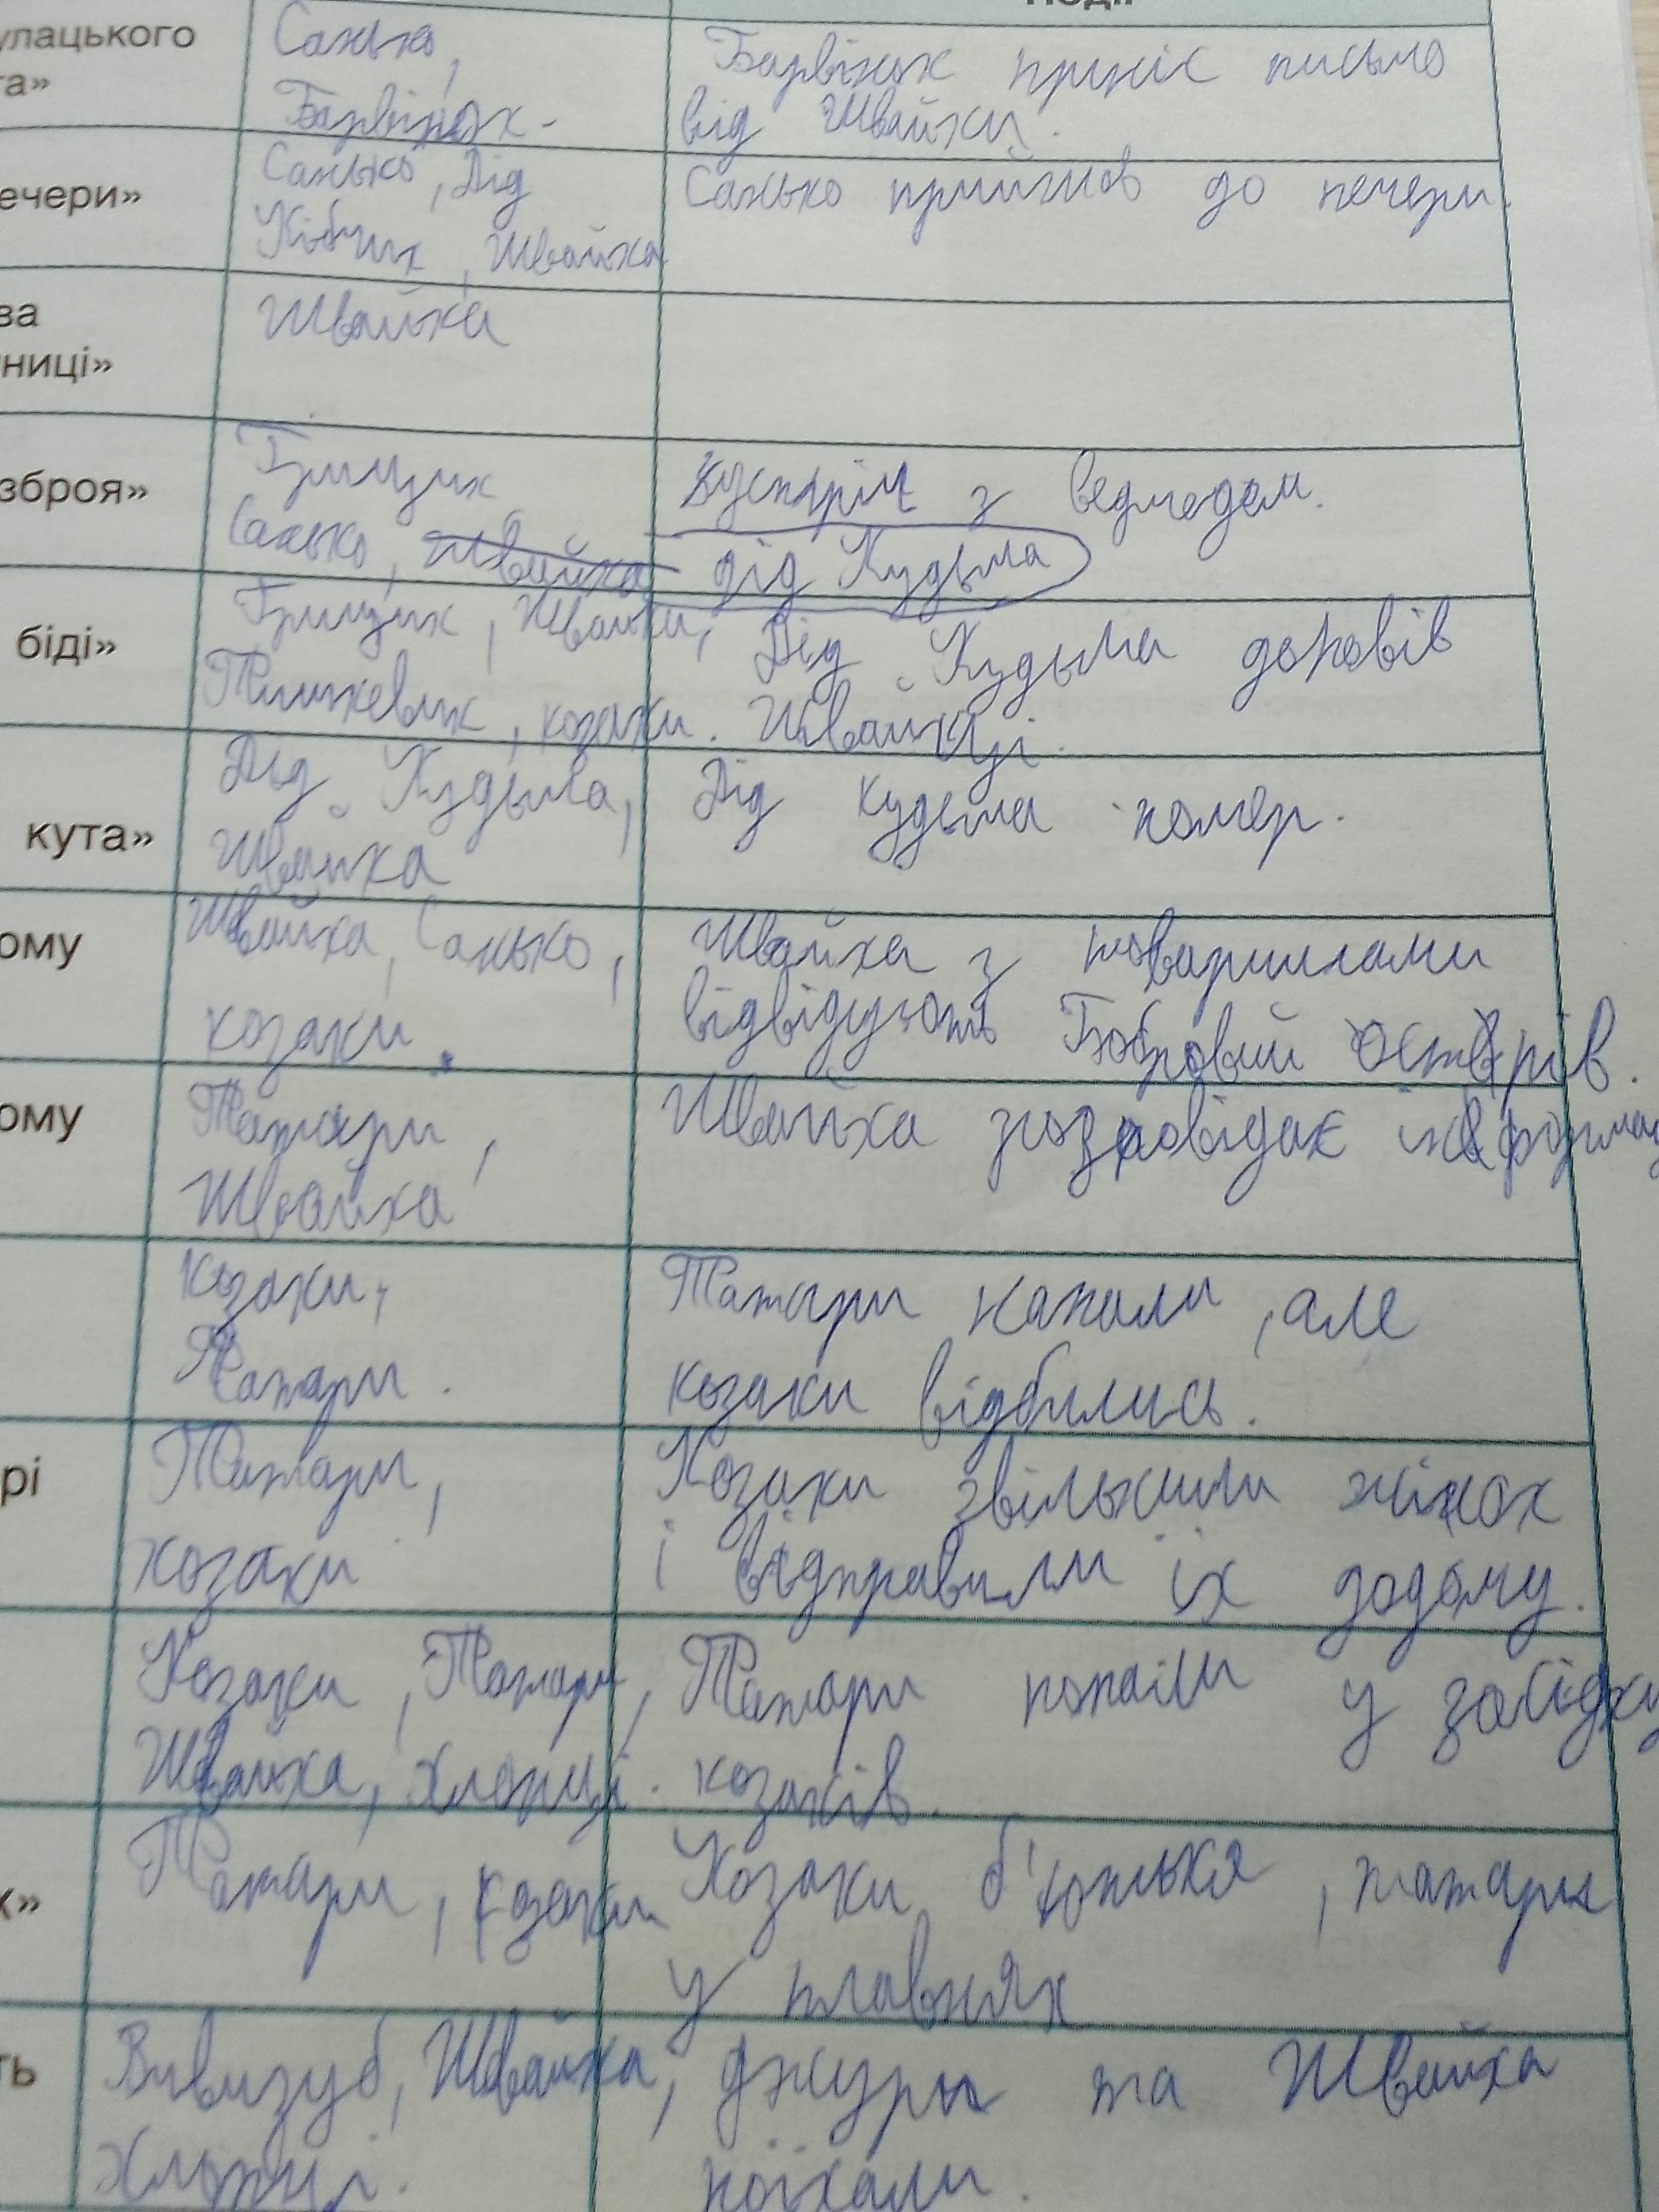 події
улацького
та»
Санько,
Барвінок -
Барвінок приніс письмо
від Швайки.
ечери»
Санько, Дід
Кібчик, Швайка
Санько прийшов до печери.
за
ниці»
Швайка
зброя»
Грицик
Санько, Швайка
зустріч з ведмедем.
дід Кудьма
біді»
Грицик, Швайка,
Тишкевич, козаки.
Дід Кудьма доповів
Швайкі.
кута»
Дід Кудьма,
Швайка
Дід Кудьма помер.
ому
Швайка, Санько,
козаки.
Швайка з товаришами
відвідують Бобровий острів.
ому
Татари,
Швайка
Швайка розповідає
козаки,
Татари.
Татари напали, але
козаки відбились.
рі
Татари,
козаки
Козаки звільнили жінок
і відправили їх додому.
Козаки, Татари,
Швайка, хлопці.
Татари попали у засідку
козаків.
х»
Татари, козаки
Козаки б'ються, татари
у плавнях
ть
Вирвизуб, Швайка,
Хлопці.
джури та Швайка
поїхали.